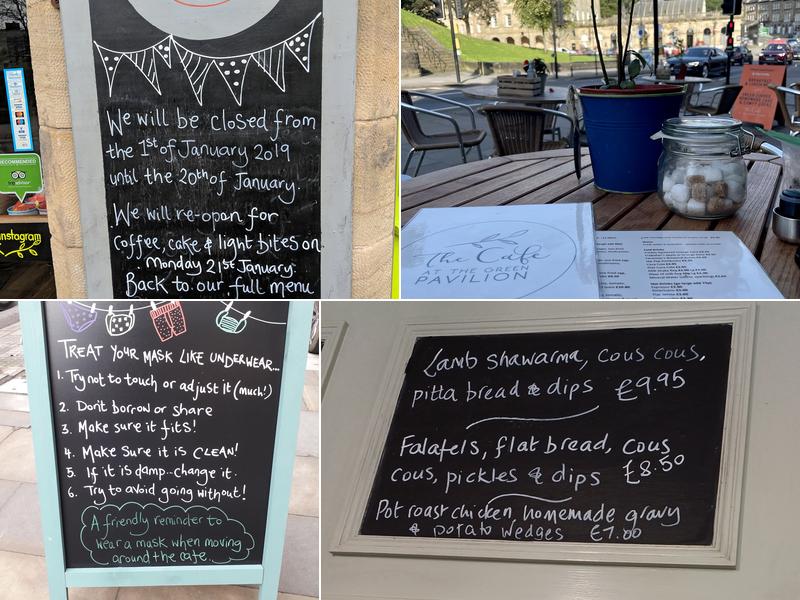 We will be closed from
the 1st of January 2019
until the 20th of January.
We will re-open for
coffee, cake, & light bites on
monday 21st January.
Back to our full menu
RECOMMENDED
tripadvisor
instagram
the Cafe
AT THE GREEN
PAVILION
TREAT YOUR MASK LIKE UNDERWEAR...
1. Try not to touch or adjust it (much!)
2. Don't borrow or share
3. Make sure it fits!
4. Make sure it is CLEAN!
5. If it is damp..change it.
6. Try to avoid going without!
A friendly reminder to
wear a mask when moving
around the cafe..
Lamb shawarma, cous cous,
pitta bread & dips £9.95
Falafels, flat bread, cous
cous, pickles & dips £8.50
Pot roast chicken homemade gravy
& potato wedges £7.00